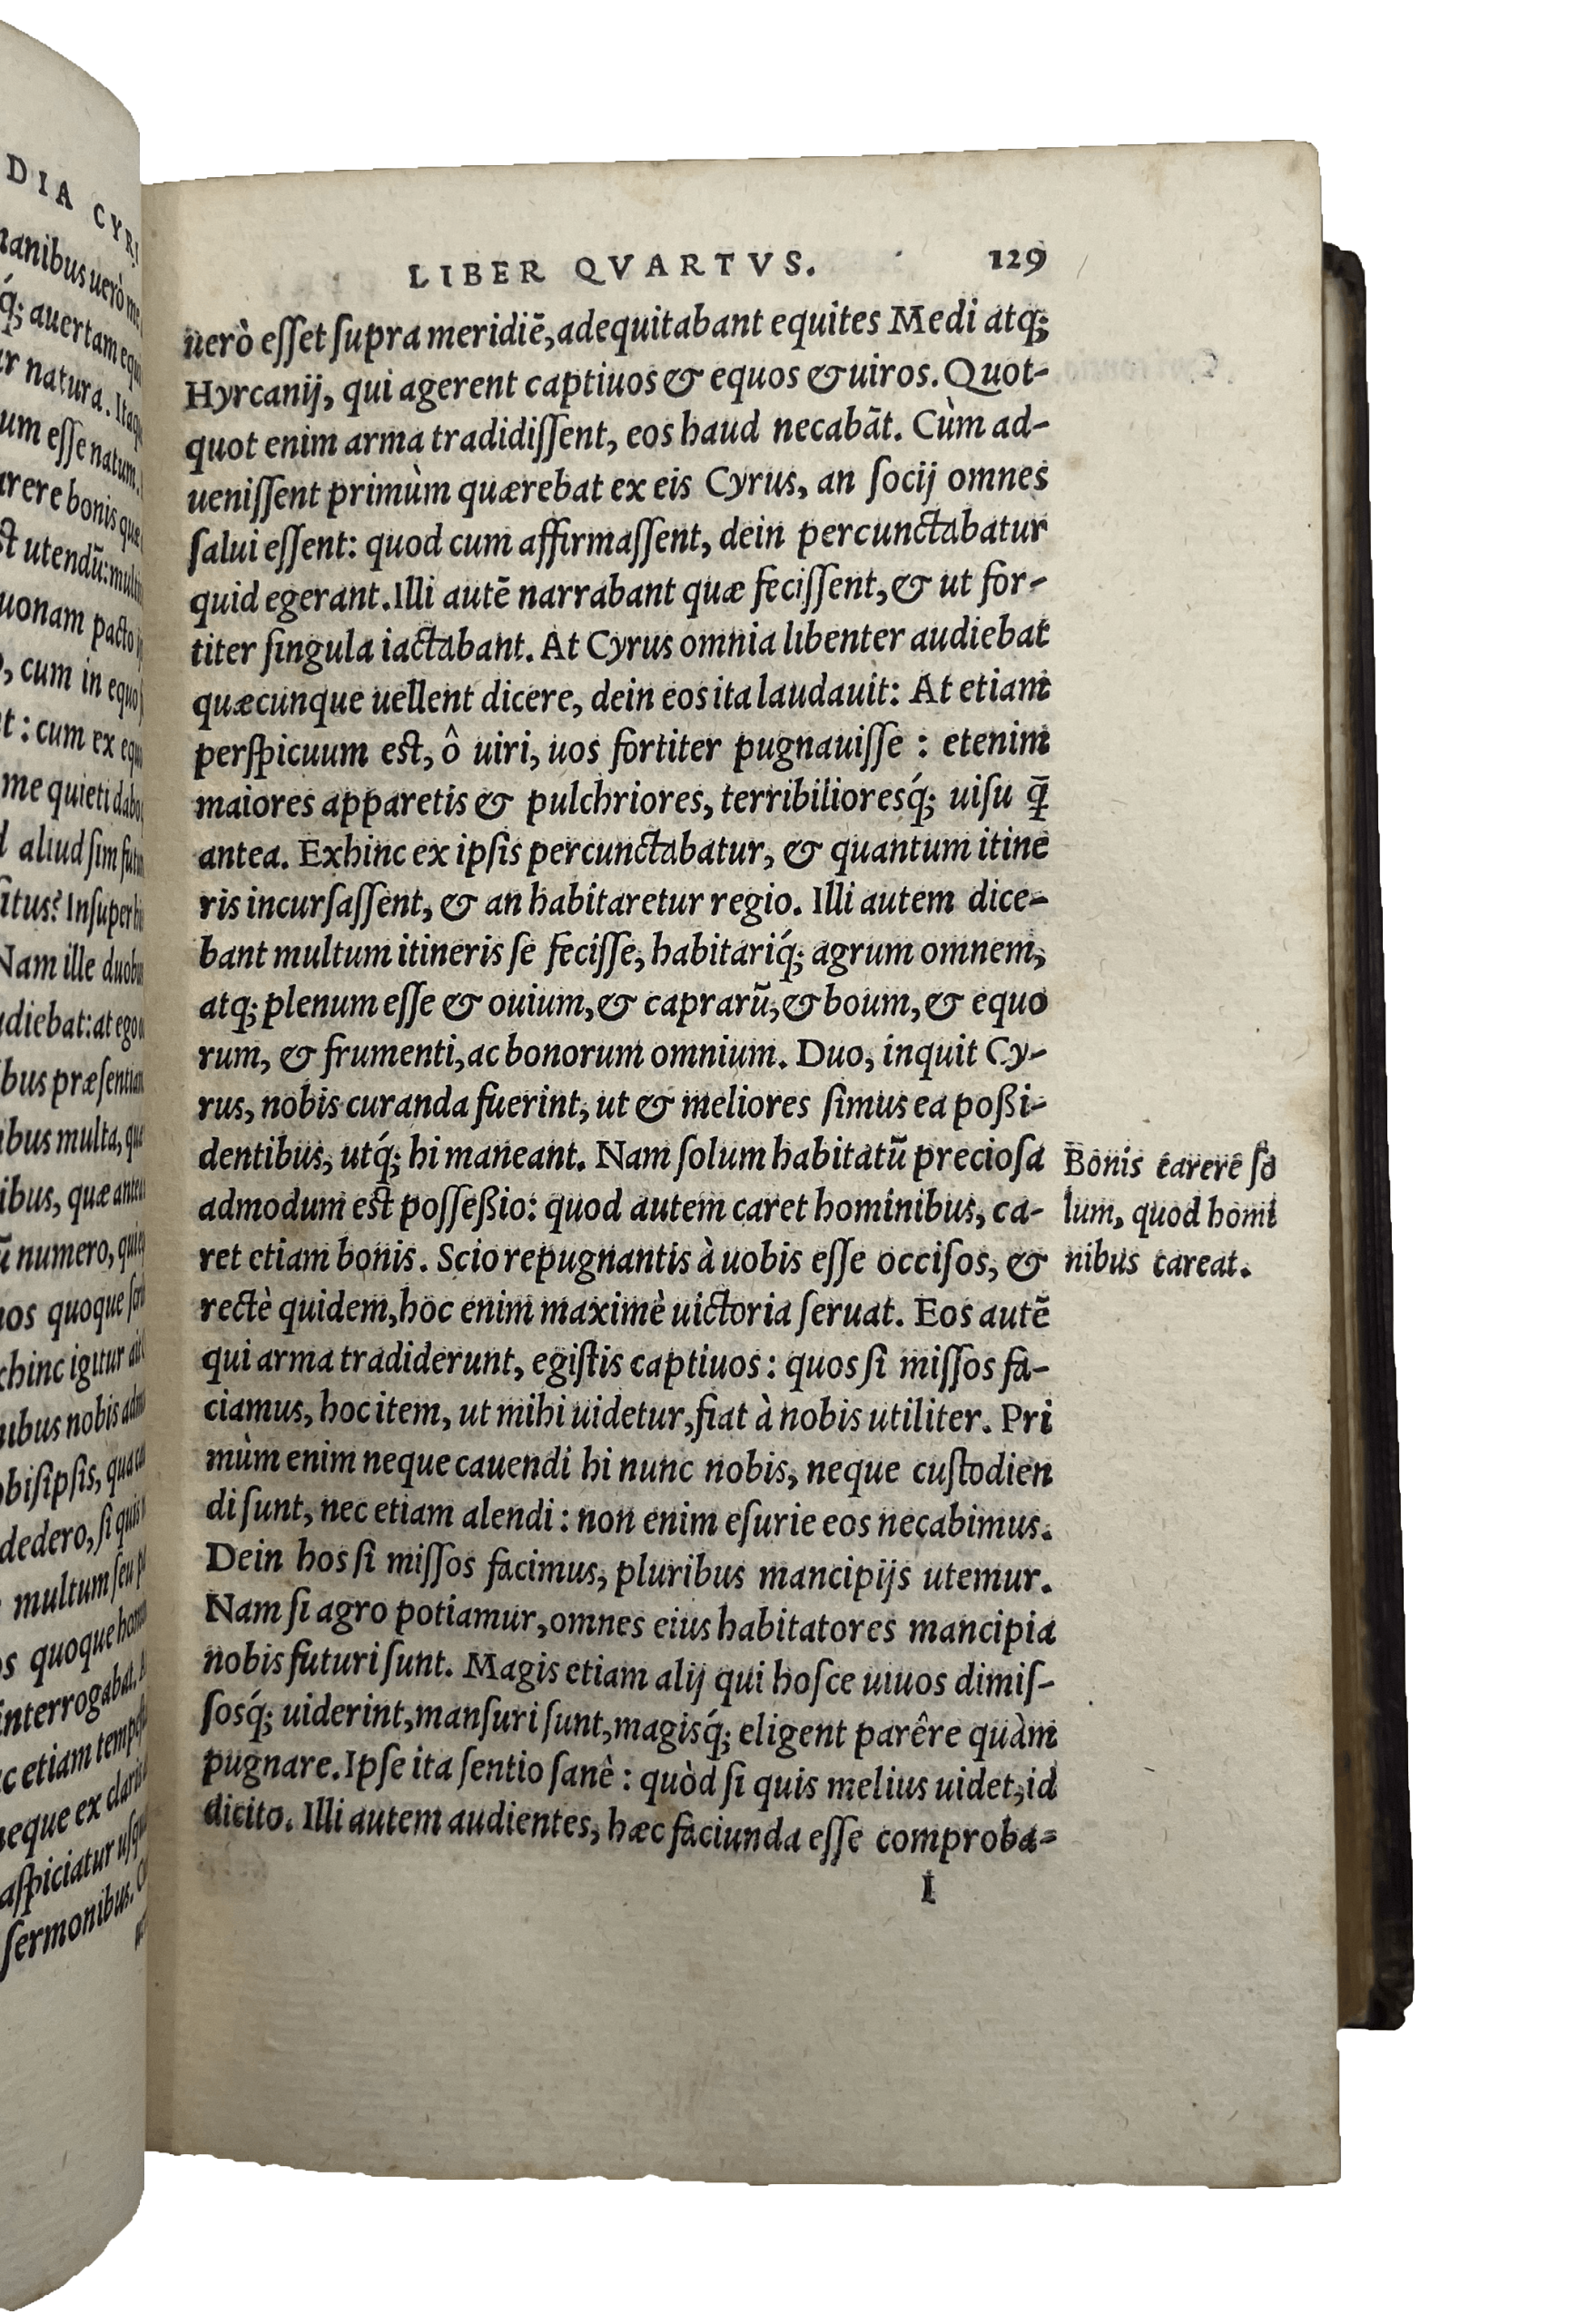 DIA CYRI
manibus uerò me
q́; auertam equ
r natura. Itaqu
um esse natum.
arere bonis quæ
st utendū: mult
uonam pacto
, cum in equo
t: cum ex equ
me quieti dabo
d aliud sim futu
situs? Insuper hi
Nam ille duobu
udiebat: at ego
bus præsentia
ibus multa, que
ibus, quæ ante
ū numero, qui
nos quoque
chinc igitur
nibus nobis adm
obis ipsis, qua
dedero, si quis
multum seu
os quoque
interrogabat.
c etiam tempe
neque ex clari
aspiciatur usqu
sermonibus.
LIBER QVARTVS. 129
uerò eſſet ſupra meridiē, adequitabant equites Medi atq;
Hyrcanij, qui agerent captiuos & equos & uiros. Quot-
quot enim arma tradidiſſent, eos haud necabāt. Cùm ad-
ueniſſent primùm quærebat ex eis Cyrus, an ſocij omnes
ſalui eſſent: quod cum affirmaſſent, dein percunctabatur
quid egerant. Illi autē narrabant quæ feciſſent, & ut for-
titer ſingula iactabant. At Cyrus omnia libenter audiebat
quæcunque uellent dicere, dein eos ita laudauit: At etiam
perſpicuum est, ô uiri, uos fortiter pugnauiſſe : etenim
maiores apparetis & pulchriores, terribilioresq́; uiſu q̄
antea. Exhinc ex ipſis percunctabatur, & quantum itine
ris incurſaſſent, & an habitaretur regio. Illi autem dice-
bant multum itineris ſe feciſſe, habitariq́; agrum omnem,
atq; plenum eſſe & ouium, & caprarū, & boum, & equo
rum, & frumenti, ac bonorum omnium. Duo, inquit Cy-
rus, nobis curanda fuerint, ut & meliores ſimus ea poßi-
dentibus, utq́; hi maneant. Nam ſolum habitatū precioſa
admodum est poſſeßio: quod autem caret hominibus, ca-
ret etiam bonis. Scio repugnantis à uobis eſſe occiſos, &
rectè quidem, hoc enim maximè uictoria ſeruat. Eos autē
qui arma tradiderunt, egiſtis captiuos : quos ſi miſſos fa-
ciamus, hoc item, ut mihi uidetur, fiat à nobis utiliter. Pri
mùm enim neque cauendi hi nunc nobis, neque cuſtodien
di ſunt, nec etiam alendi : non enim eſurie eos necabimus.
Dein hos ſi miſſos facimus, pluribus mancipijs utemur.
Nam ſi agro potiamur, omnes eius habitatores mancipia
nobis futuri ſunt. Magis etiam alij qui hoſce uiuos dimiſ-
ſosq́; uiderint, manſuri ſunt, magisq́; eligent parêre quàm
pugnare. Ipſe ita ſentio ſanè : quòd ſi quis melius uidet, id
dicito. Illi autem audientes, hæc faciunda eſſe comproba-
I
Bonis carere ſo
lum, quod homi
nibus careat.